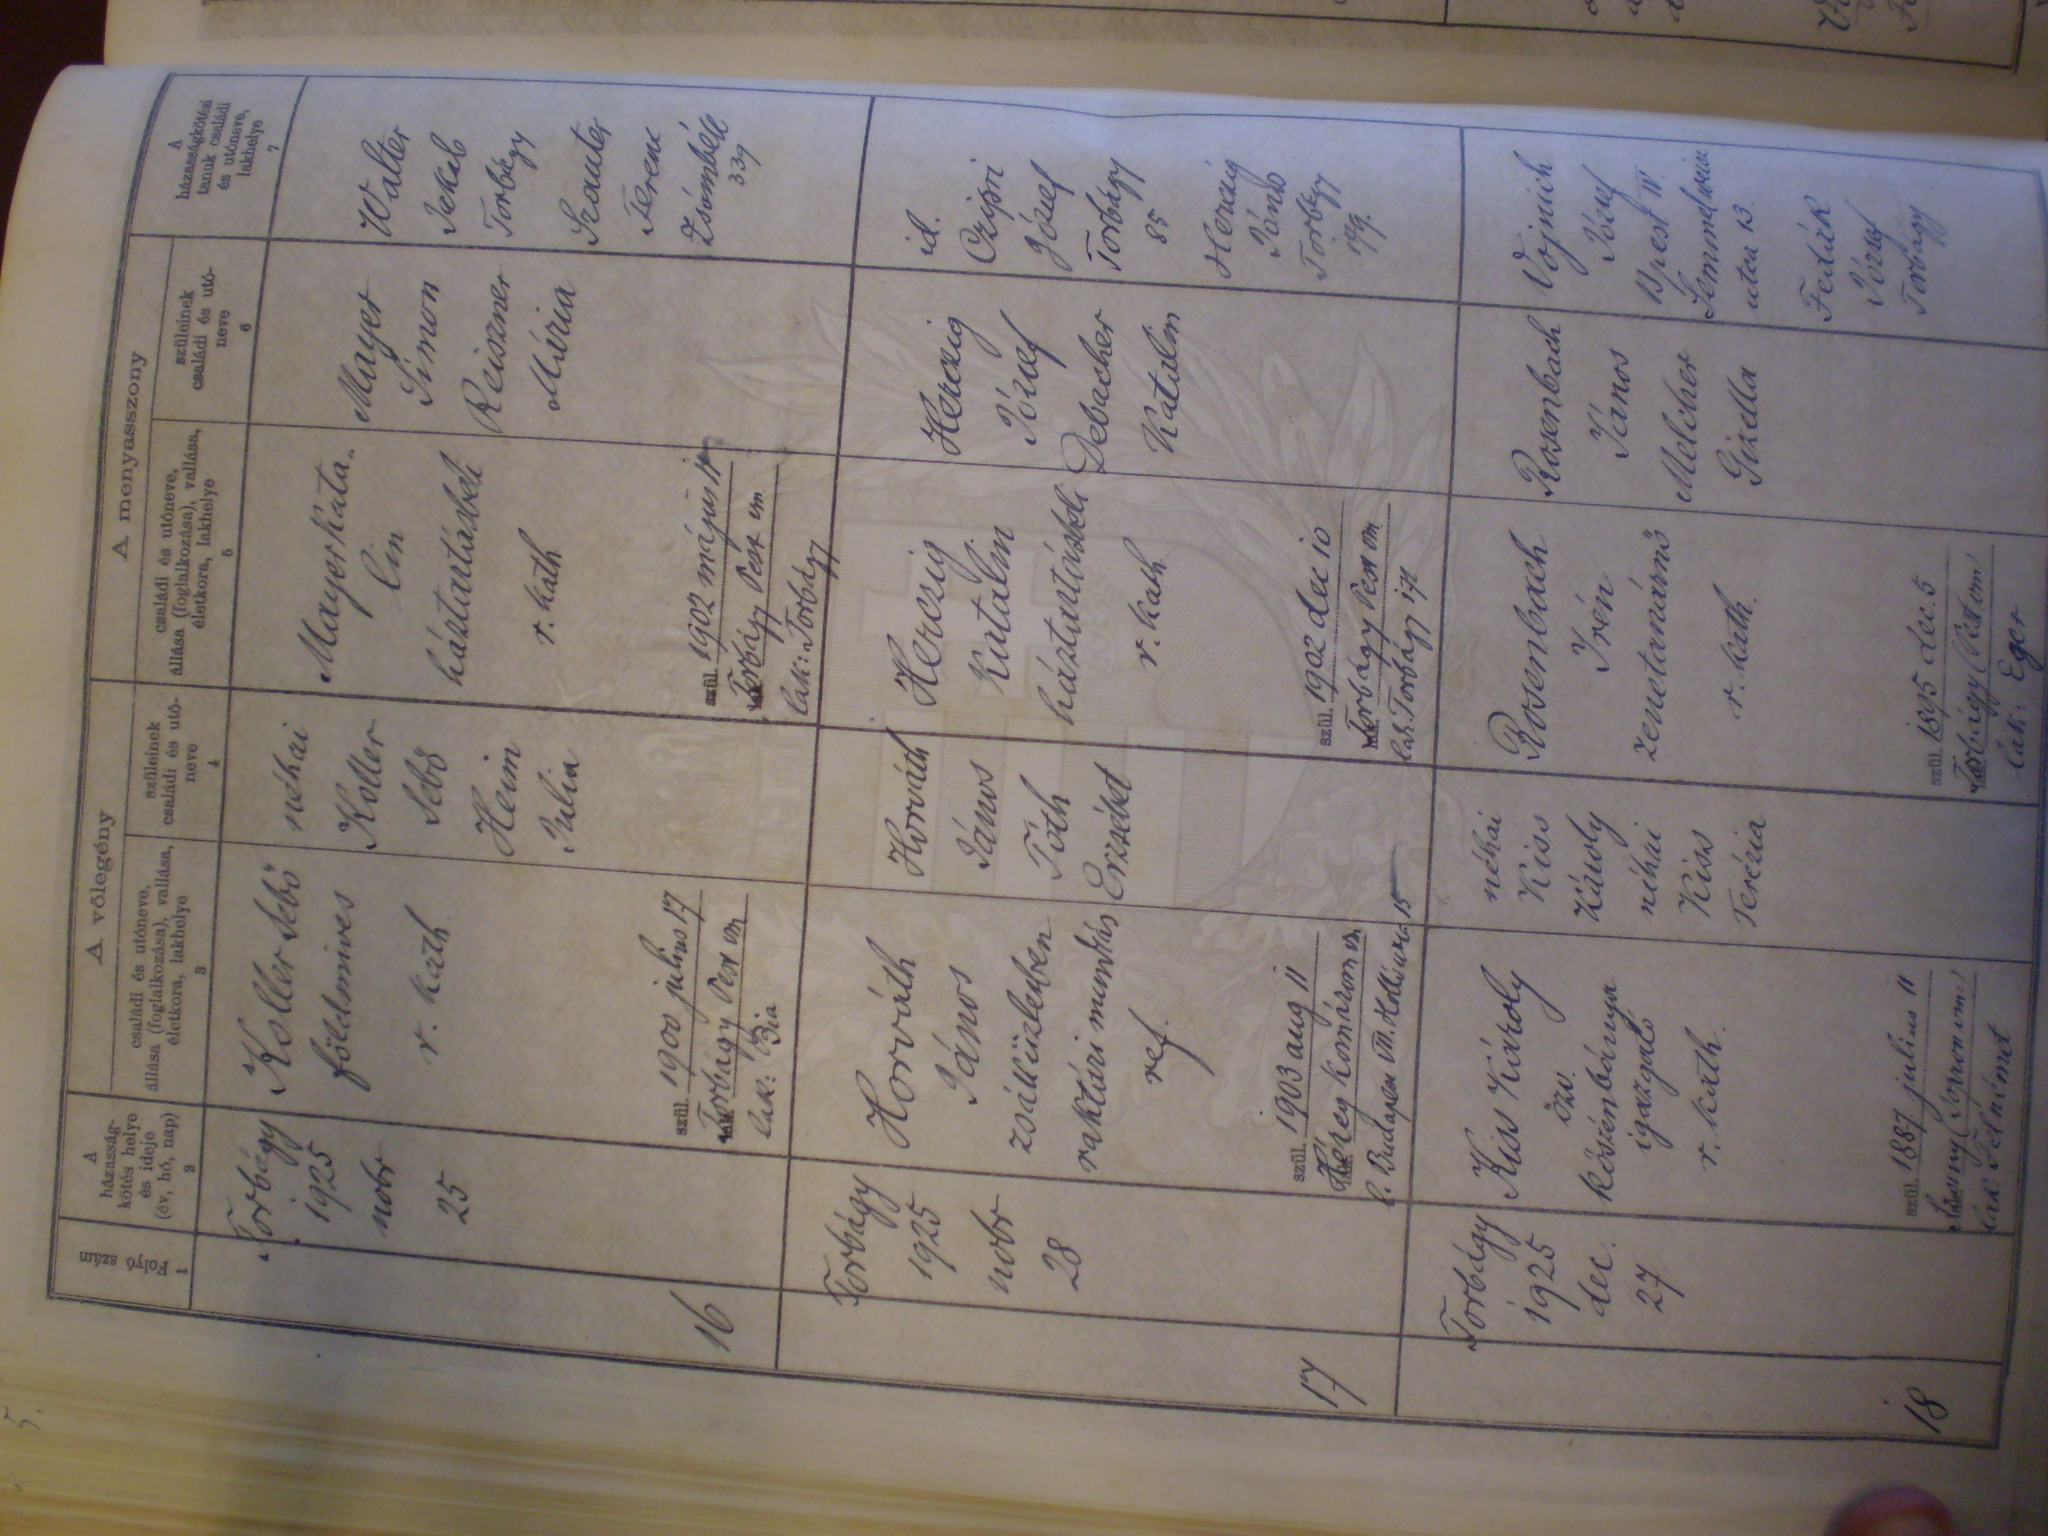 A vőlegény
A menyasszony
Folyó szám
1
A
házasság-
kötés helye
és ideje
(év, hó, nap)
2
családi és utóneve,
állása (foglalkozása), vallása,
életkora, lakhelye
3
szüleinek
családi és utó-
neve
4
családi és utóneve,
állása (foglalkozása), vallása,
életkora, lakhelye
5
szüleinek
családi és utó-
neve
6
A
házasságkötési
tanuk családi
és utóneve,
lakhelye
7
16
Torbágy
1925
nobr
25
Koller Sebö
földmives
r. kath
szül. 1900 julius 17
Torbágy Pest vm
lak: Bia
néhai
Koller
Sebö
Heim
Julia
Mayer Kata-
lin
háztartásbeli
r. kath
szül. 1902 május 17
Torbágy Pest vm
lak: Torbágy
Mayer
Simon
Reiszner
Mária
Walter
Jakab
Torbágy
Szauter
Ferenc
Zsámbék
339
17
Torbágy
1925
nobr
28
Horváth
János
zsáküzletben
raktári munkás
ref.
szül. 1903 aug 11
Héreg komárom vm
l. Budapest VIII. Holló utca 15
Horváth
János
Tóth
Erzsébet
Herczig
Katalin
háztartásbeli
r. kath
szül. 1902 dec 10
Torbágy Pest vm
lak. Torbágy 171
Herczig
József
Debacher
Katalin
id.
Czipri
József
Torbágy
85
Herczig
János
Torbágy
179.
18
Torbágy
1925
dec.
27
Kiss Károly
özv.
kőszénbánya
igazgató
r. kath.
szül. 1887 julius 11
(Sopron vm)
lak: Felnémet
néhai
Kiss
Károly
néhai
Kiss
Terézia
Rosenbach
Irén
zenetanárnő
r. kath.
szül. 1895 dec. 5
Torbágy (Pest vm)
lak: Eger
Rosenbach
János
Melcher
Gizella
Vojnich
József
Bpest IV.
Semmelweis
utca 13.
Fedák
József
Torbágy